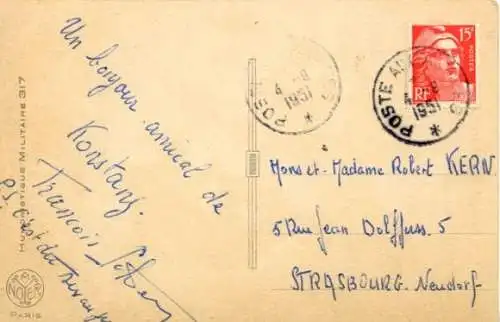 Un bonjour amical de
Konstanz.
François
P.S. C'est du
HUMORISTIQUE MILITAIRE 317
PARIS
POSTE AUX
4 -8
1951
*
15F
POSTES
RF
POSTE AUX
4 -8
1951
*
Mons et Madame Robert KERN
5 Rue Jean Dollfuss. 5
STRASBOURG. Neudorf